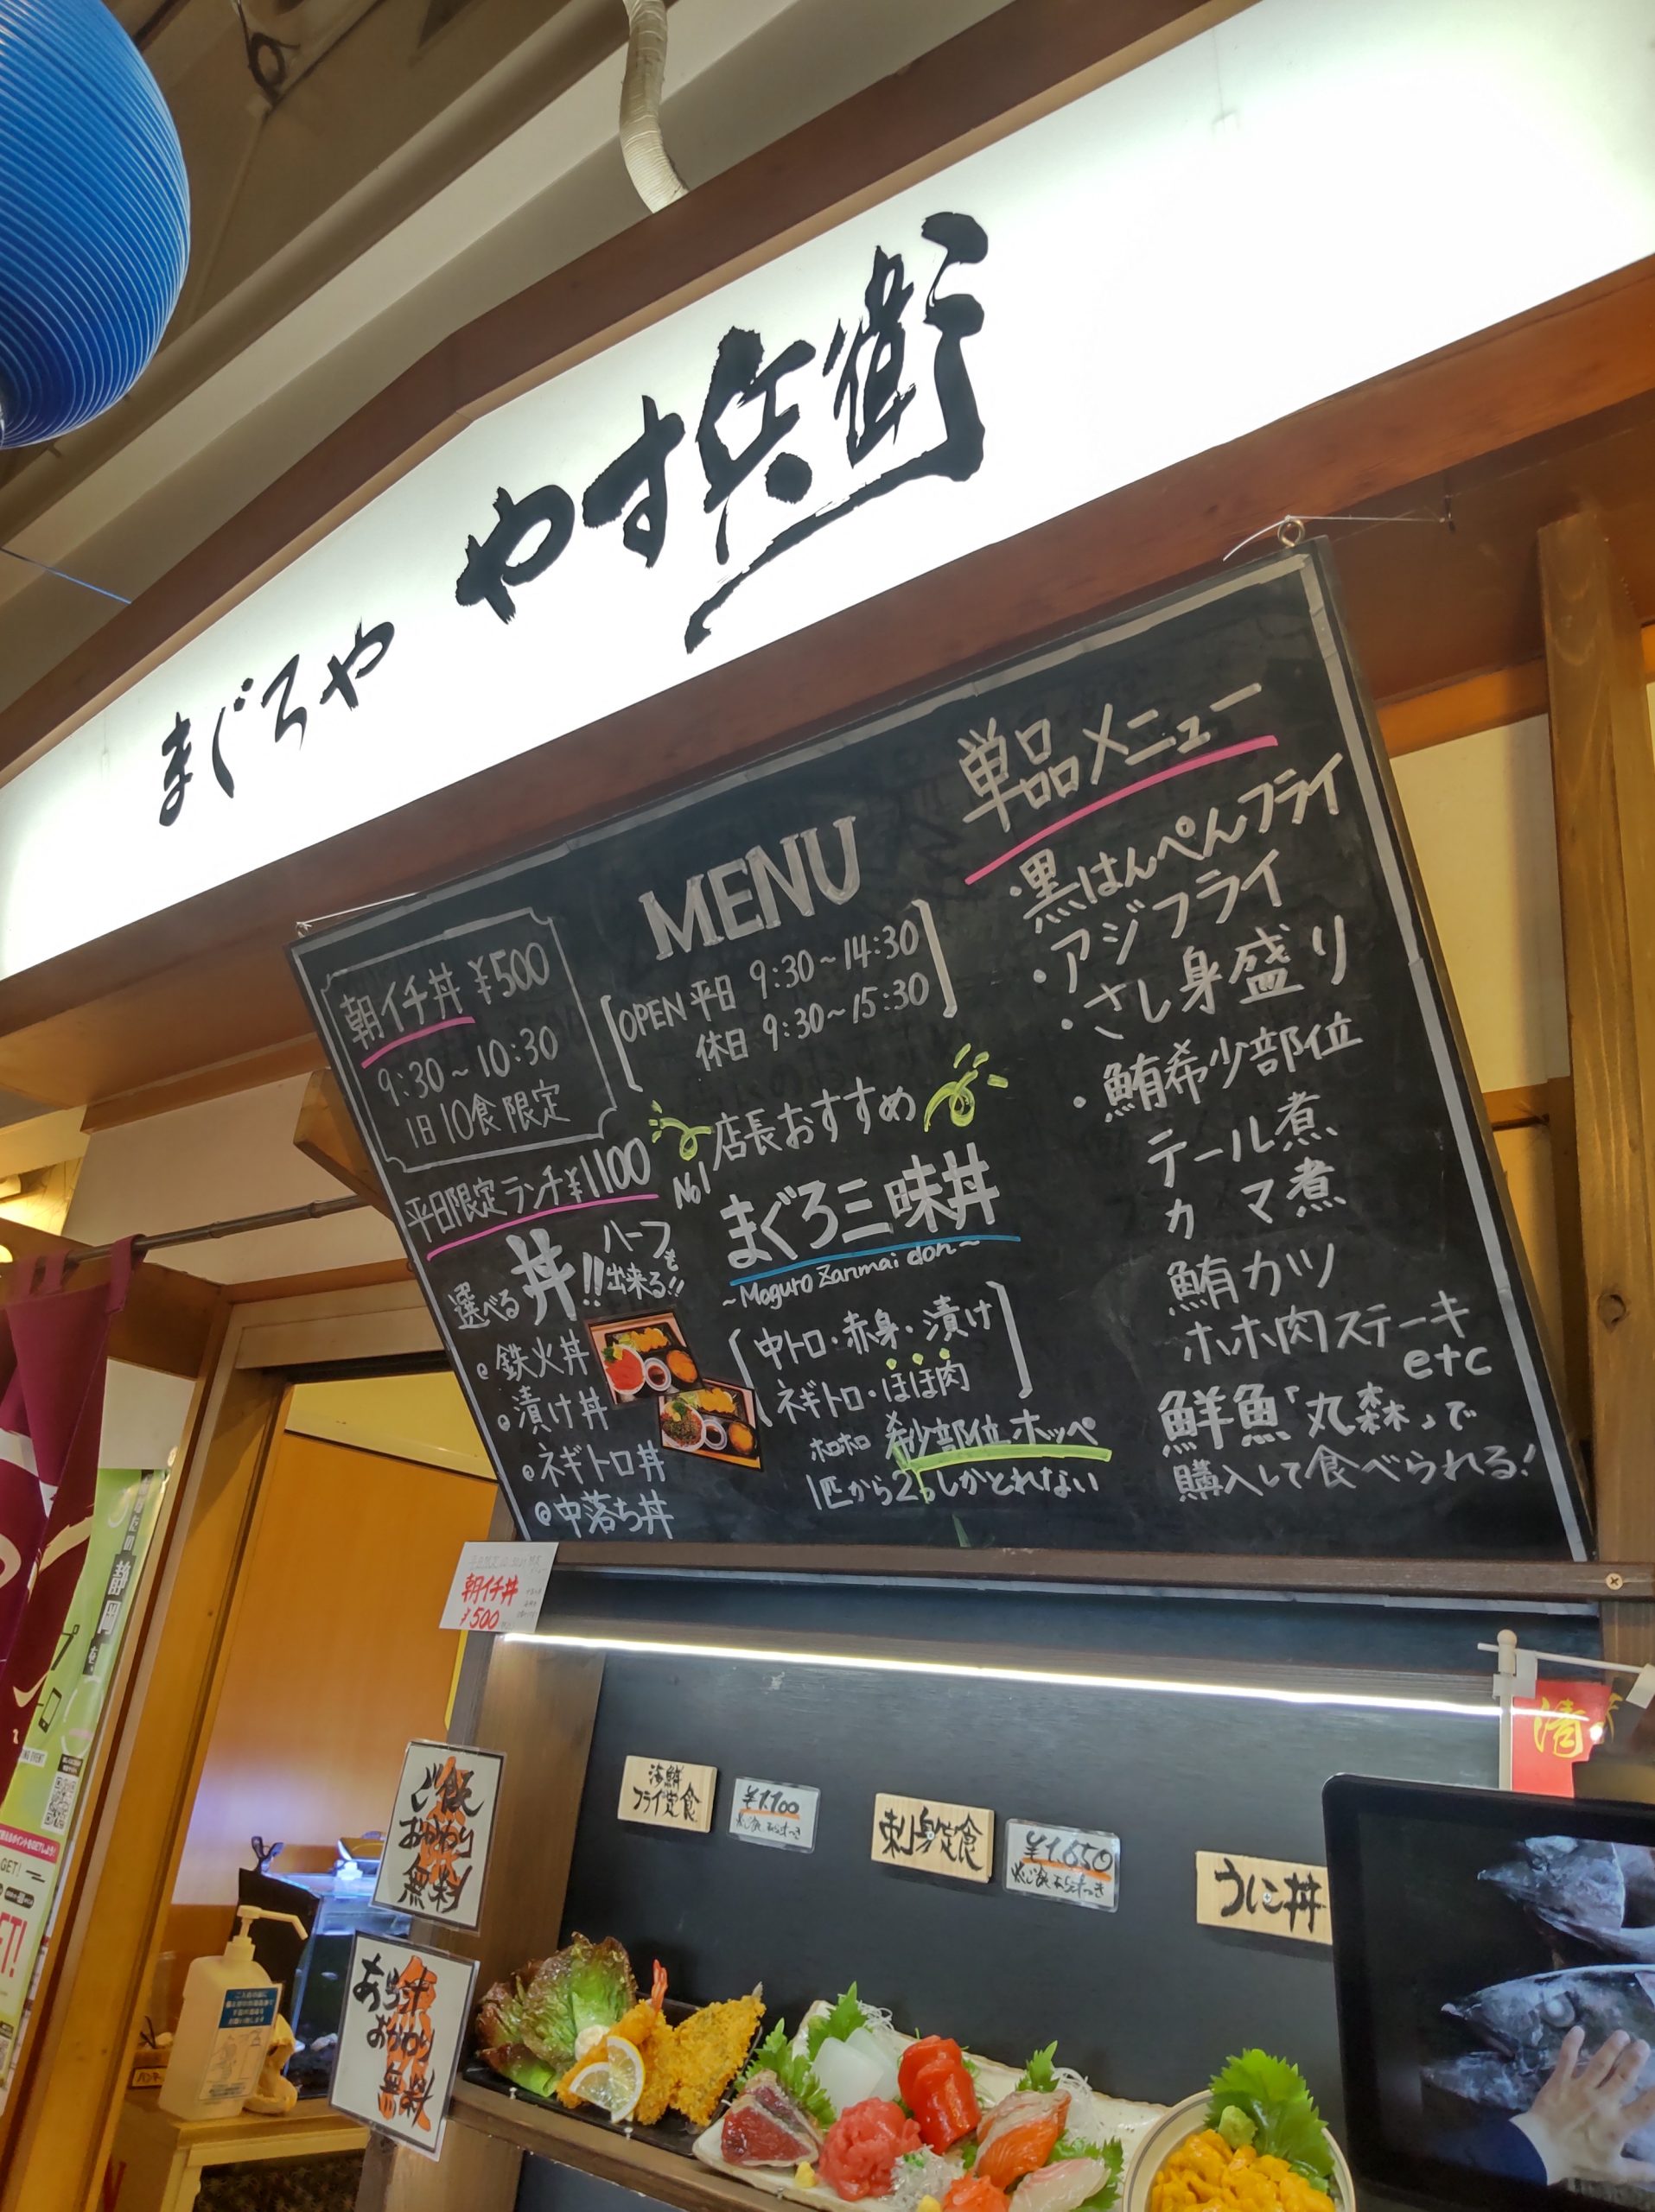 まぐろや やす兵衛
MENU
OPEN 平日 9:30~14:30
休日 9:30~15:30
朝イチ丼 ¥500
9:30~10:30
1日10食限定
平日限定ランチ¥1100
選べる丼!!ハーフも出来る!!
鉄火丼
漬け丼
ネギトロ丼
中落ち丼
店長おすすめ
No1
まぐろ三昧丼
~Maguro Zanmai don~
中トロ・赤身・漬け
ネギトロ・ほほ肉
ホロホロ 希少部位ホッペ
1匹から2つしかとれない
単品メニュー
・黒はんぺんフライ
・アジフライ
・さし身盛り
・鮪希少部位
テール煮
カマ煮
鮪カツ
ホホ肉ステーキ
etc
鮮魚「丸森」で
購入して食べられる!
朝イチ丼
¥500
ご飯
おかわり
無料
あら汁
おかわり
無料
海鮮
フライ定食
¥1,100
刺身定食
¥1,650
うに丼
清
静岡
GET!